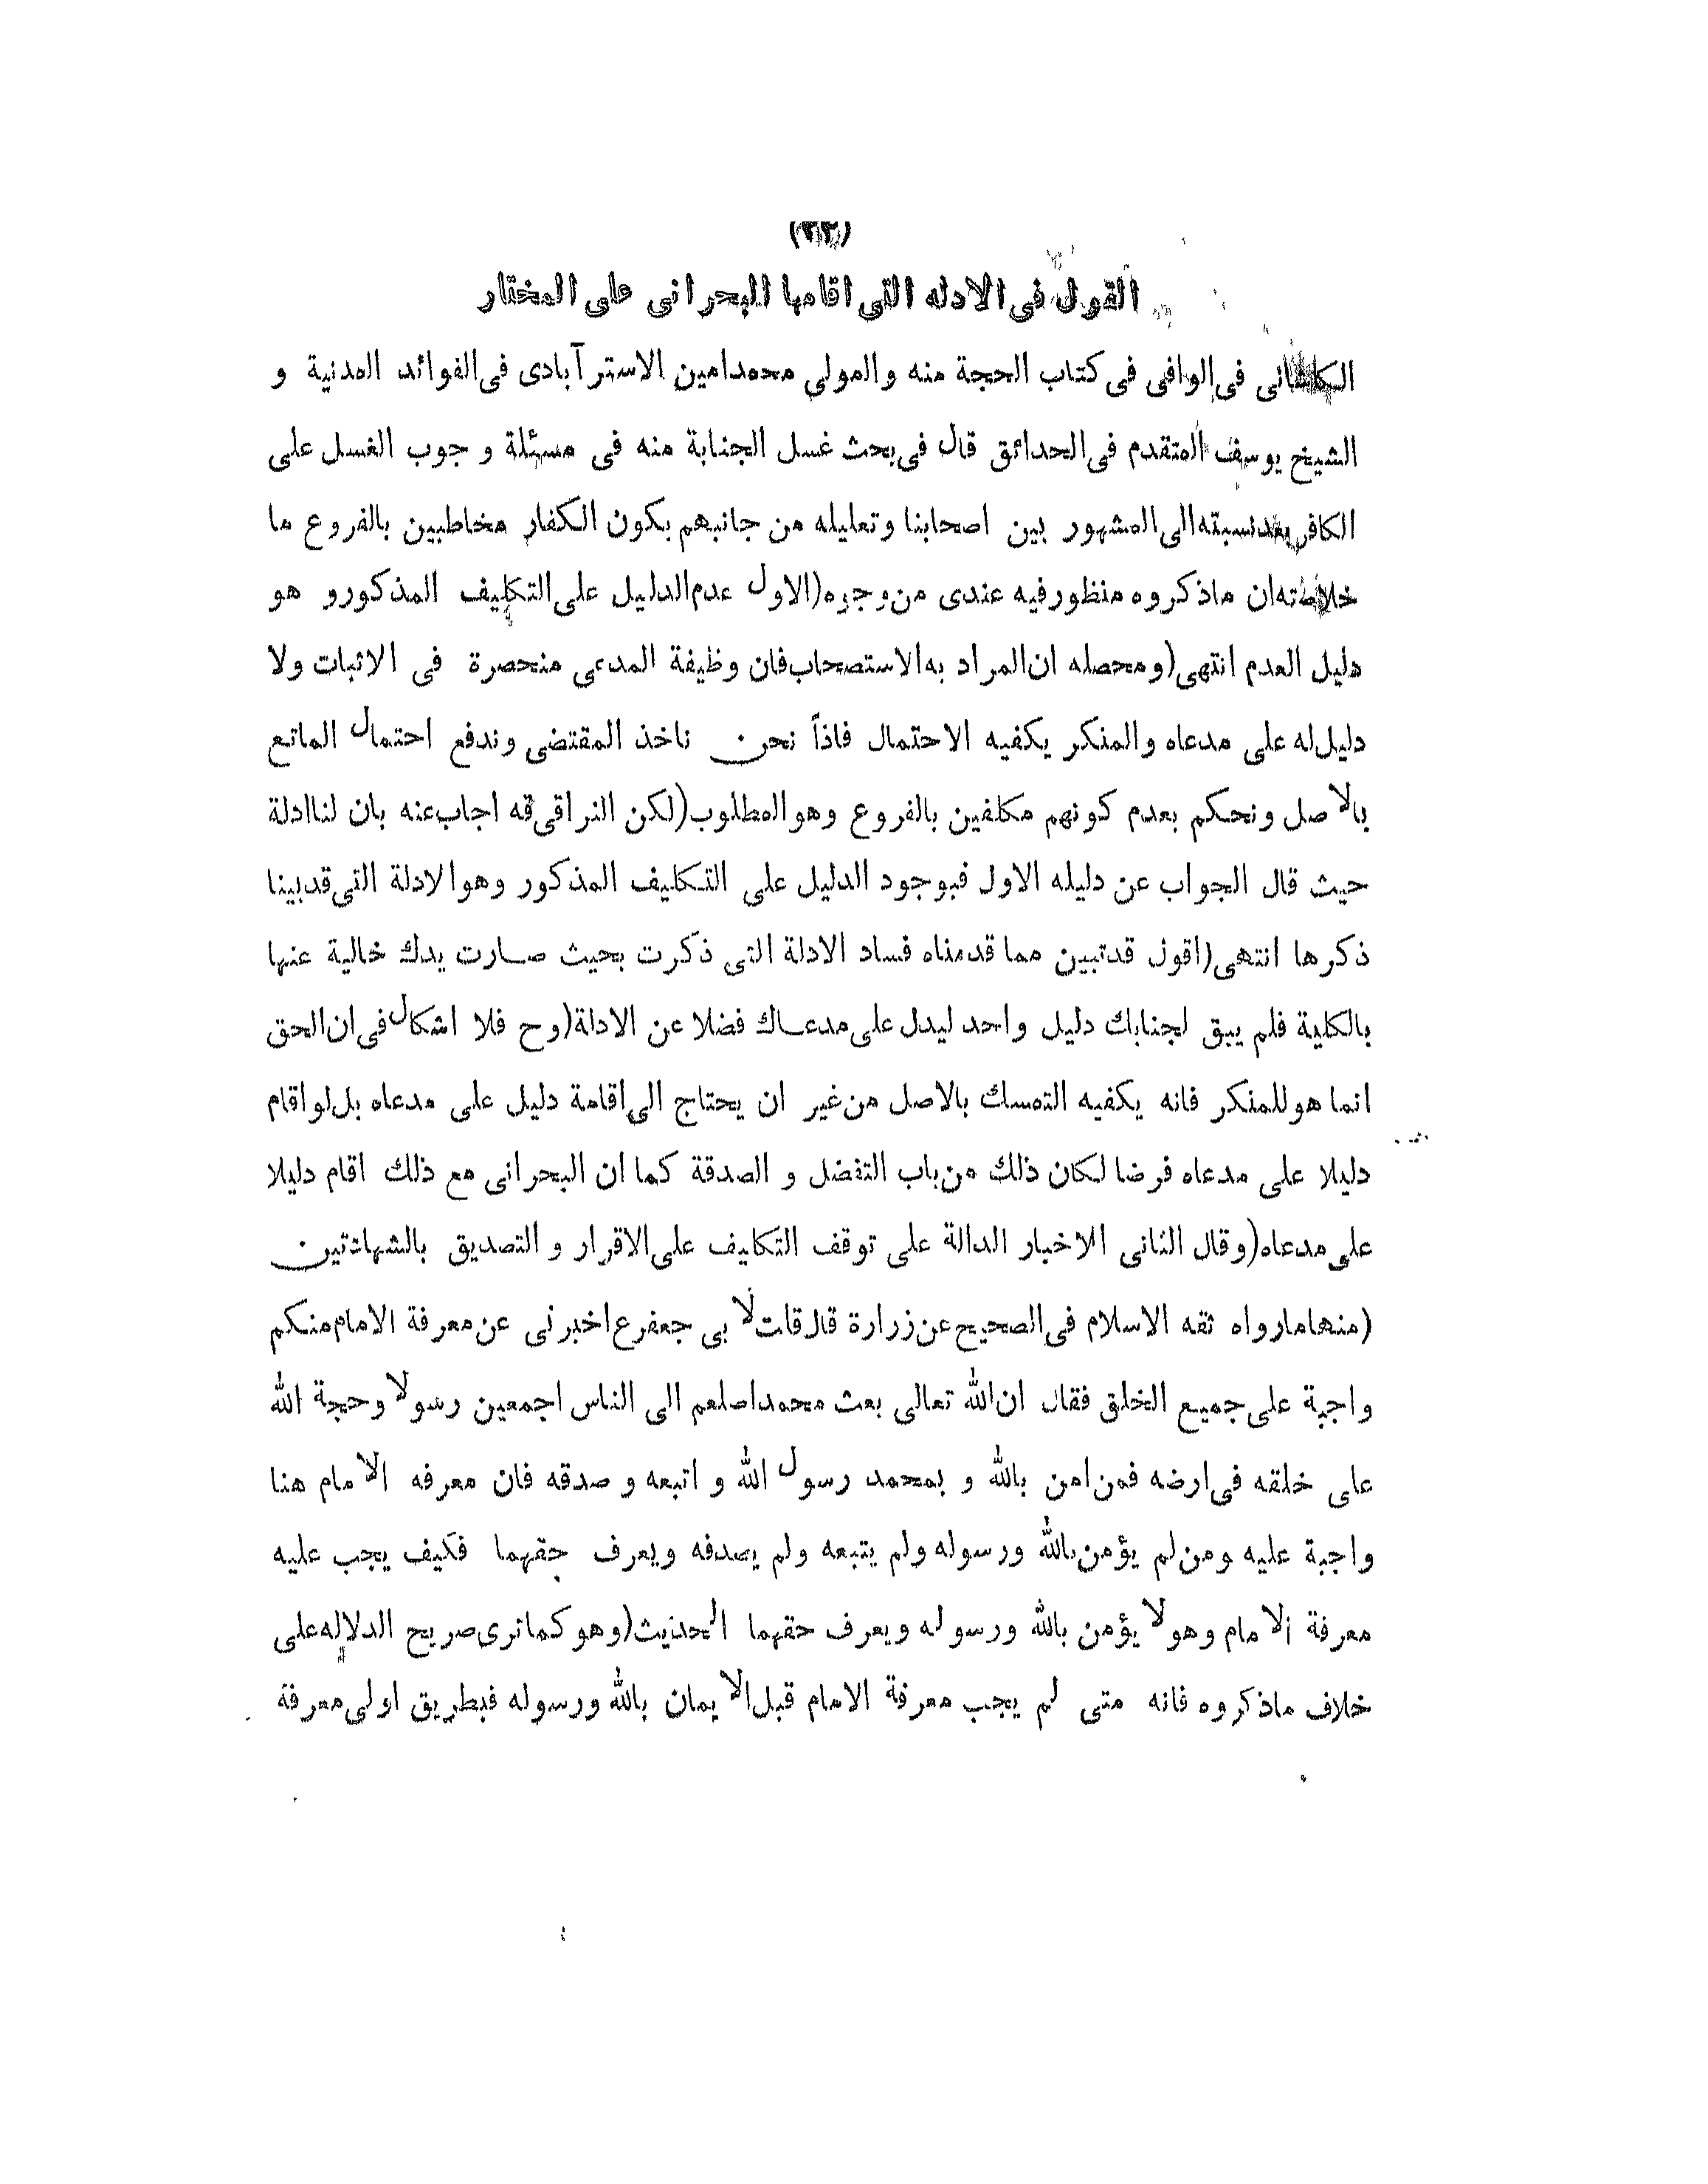 القول في الادله التي اقامها البحراني على المختار
الكاشاني في الوافي في كتاب الحجة منه والمولى محمد امين الاسترآبادى في الفوائد المدنية و
الشيخ يوسف المتقدم في الحدائق قال في بحث غسل الجنابة منه في مسئلة وجوب الغسل على
الكافر بعد نسبته الى المشهور بين اصحابنا وتعليله من جانبهم بكون الكفار مخاطبين بالفروع ما
خلاصته ان ماذكروه منظور فيه عندى من وجوه (الاول عدم الدليل على التكليف المذكور و هو
دليل العدم انتهى (ومحصله ان المراد به الاستصحاب فان وظيفة المدعى منحصرة في الاثبات ولا
دليل له على مدعاه والمنكر يكفيه الاحتمال فاذاً نحن ناخذ المقتضى وندفع احتمال المانع
بالاصل ونحكم بعدم كونهم مكلفين بالفروع وهو المطلوب (لكن النراقي قه اجاب عنه بان لنا ادلة
حيث قال الجواب عن دليله الاول فبوجود الدليل على التكليف المذكور وهو الادلة التي قد بينا
ذكرها انتهى (اقول قد تبين مما قدمناه فساد الادلة التي ذكرت بحيث صارت يدك خالية عنها
بالكلية فلم يبق لجنابك دليل واحد ليدل على مدعاك فضلا عن الادلة (وح فلا اشكال في ان الحق
انما هو للمنكر فانه يكفيه التمسك بالاصل من غير ان يحتاج الى اقامة دليل على مدعاه بل لو اقام
دليلا على مدعاه فرضا لكان ذلك من باب التفضل و الصدقة كما ان البحراني مع ذلك اقام دليلا
على مدعاه (وقال الثاني الاخبار الدالة على توقف التكليف على الاقرار و التصديق بالشهادتين
(منها مارواه ثقه الاسلام في الصحيح عن زرارة قال قلت لابي جعفر ع اخبرني عن معرفة الامام منكم
واجبة على جميع الخلق فقال ان الله تعالى بعث محمدا صلعم الى الناس اجمعين رسولا وحجة الله
على خلقه في ارضه فمن امن بالله و بمحمد رسول الله و اتبعه و صدقه فان معرفه الامام منا
واجبة عليه ومن لم يؤمن بالله ورسوله ولم يتبعه ولم يصدقه ويعرف حقهما فكيف يجب عليه
معرفة الامام وهو لا يؤمن بالله ورسوله ويعرف حقهما الحديث (وهو كماترى صريح الدلاله على
خلاف ماذكروه فانه متى لم يجب معرفة الامام قبل الايمان بالله ورسوله فبطريق اولى معرفة